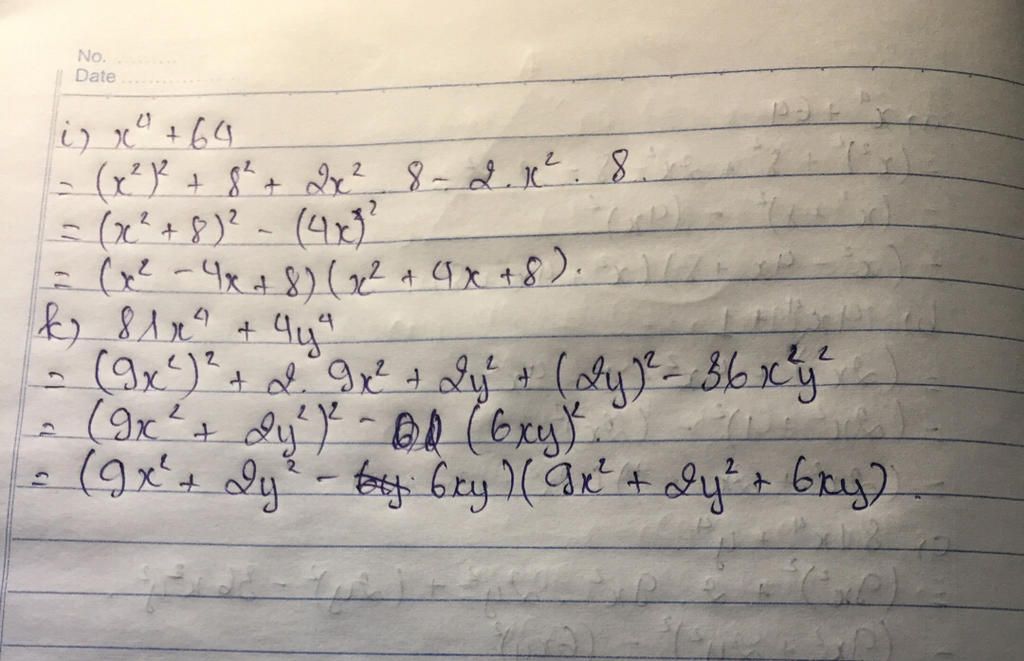 No. .........
Date ..............
i) x⁴ + 64
= (x²)² + 8² + 2x² . 8 - 2 . x² . 8.
= (x² + 8)² - (4x)²
= (x² - 4x + 8)(x² + 4x + 8).
k) 81x⁴ + 4y⁴
= (9x²)² + 2. 9x² + 2y² + (2y)² - 36x²y²
= (9x² + 2y²)² - (6xy)².
= (9x² + 2y² - 6xy)(9x² + 2y² + 6xy).